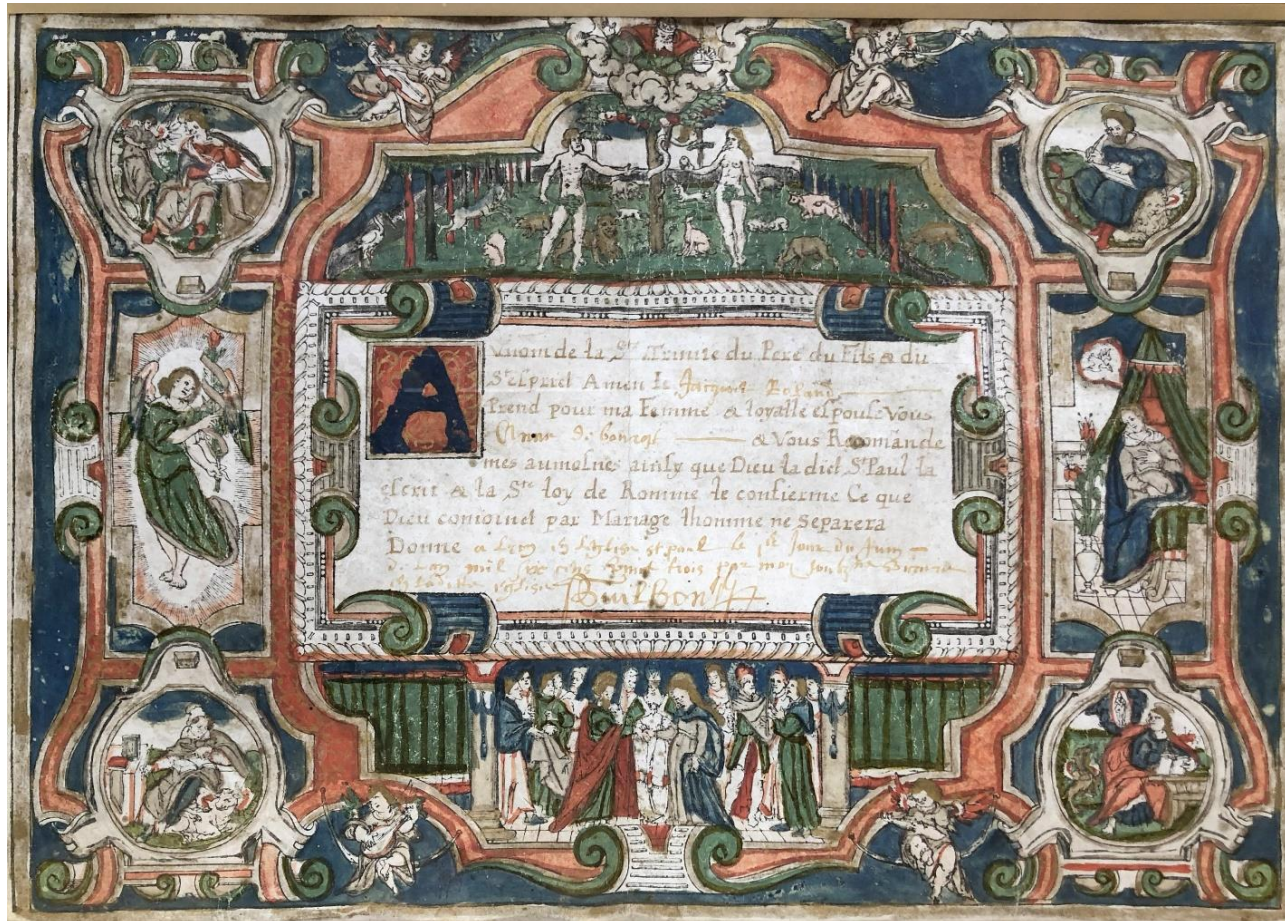 Au nom de la Ste Trinite du Pere du Fils & du
St esprict Amen Ie Jacques
Prend pour ma Femme & loyalle espouse Vous
Anne & Vous Recomande
mes aumosnes ainsy que Dieu la dict St Paul la
escrit & la Ste loy de Romme le confierme Ce que
Dieu conioinct par Mariage lhomme ne Separera
Donne a en leglise st paul le jour du Juin
mil six cens vingt trois par moy